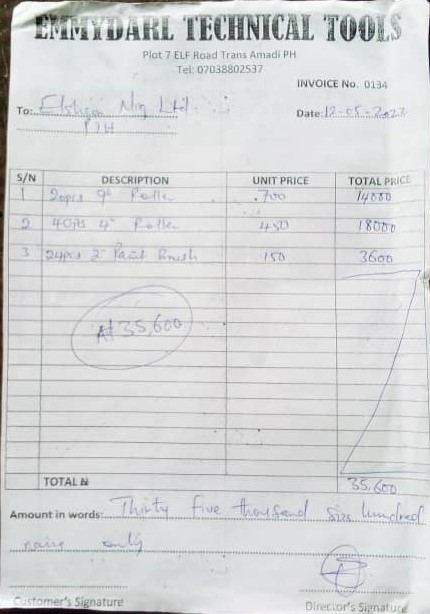 EMMYDARL TECHNICAL TOOLS
Plot 7 ELF Road Trans Amadi PH
Tel: 07038802537
INVOICE No. 0134
To: Nig Ltd.
Date: 12-05-2022
PH
S/N DESCRIPTION UNIT PRICE TOTAL PRICE
1 20pcs 9" Roller 700 14000
2 40pcs 4" Roller 450 18000
3 24pcs 2" Paint Brush 150 3600
₦35,600
TOTAL ₦ 35,600
Amount in words: Thirty five thousand six hundred
naira only
Customer's Signature Director's Signature